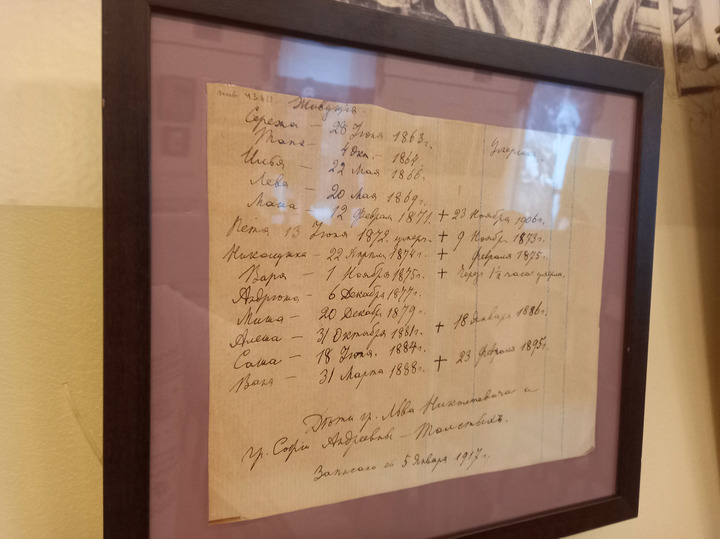 Умерли.
Сережа — 28 Іюня 1863 г.
Таня — 4 Окт. — 1864
Илья — 22 Мая 1866.
Лева — 20 Мая 1869 г.
Маша — 12 Февраля 1871. + 23 Ноября 1906 г.
Петя 13 Іюня 1872. умеръ. + 9 Ноября 1873 г.
Николушка — 22 Апреля 1874 г. + Февраля 1875 г.
Варя — 1 Ноября 1875 г. + Через 1/2 часа умерла.
Андрюша — 6 Декабря 1877 г.
Миша — 20 Декабря 1879 г.
Алеша — 31 Октября 1881 г. + 18 Января 1886 г.
Саша — 18 Іюня. 1884 г.
Ваня — 31 Марта 1888 г. + 23 Февраля 1895 г.
Дѣти гр. Льва Николаевича и
гр. Софьи Андреевны — Толстыхъ.
Записано 5 Января 1917 г.